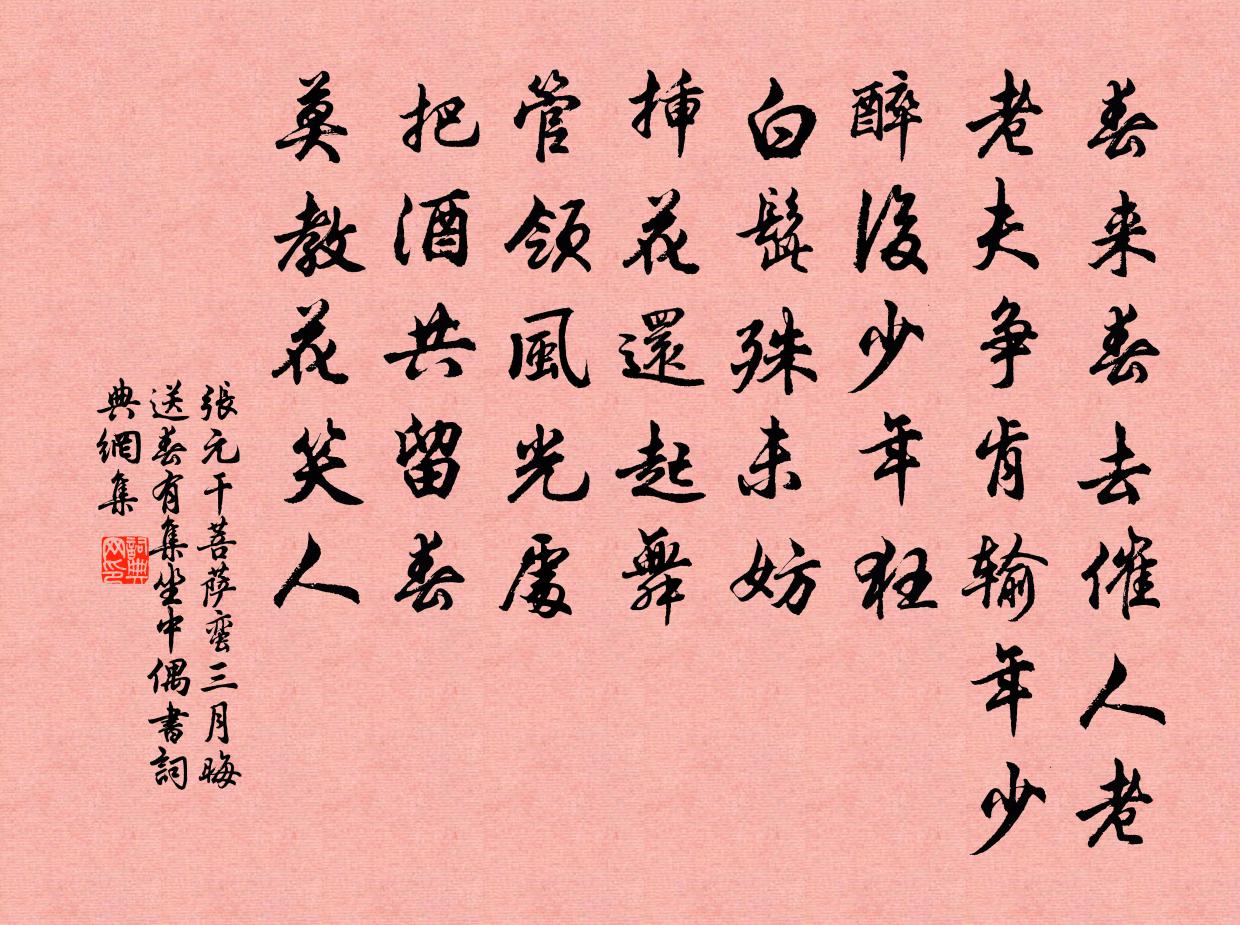 春来春去催人老
老夫争肯输年少
醉後少年狂
白髭殊未妨
插花還起舞
管領風光處
把酒共留春
莫教花笑人
張元干菩萨蛮三月晦
送春有集坐中偶書詞
典網集
詞典网印